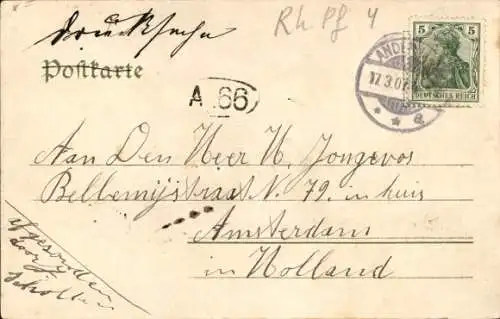 Drucksache
Rh. Pf 4
Postkarte
A 66
ANDE
17.3.07
* * a.
5 5
DEUTSCHES REICH
Aan Den Heer H. Jongevos
Bellemijstraat N. 79. in huis
Amsterdam
in Holland
afgesonden
door